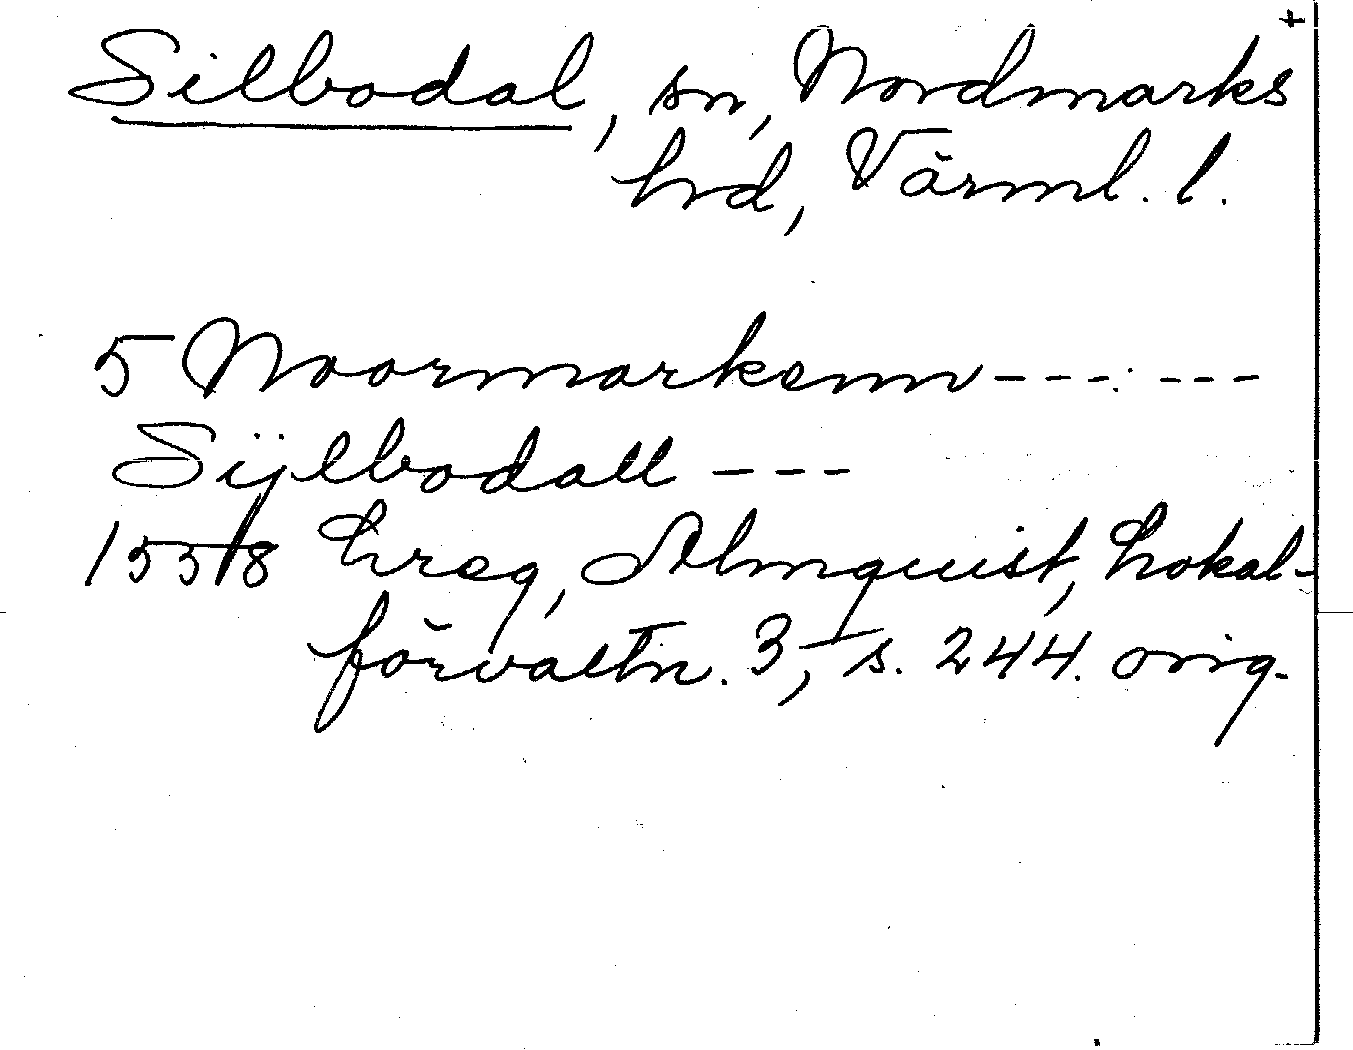 +
Silbodal, sn, Nordmarks
hd, Värml. l.
5 Noormarkenn - - - - - -
Sÿlbodall - - -
1558 Lreg, Almquist, Lokal-
förvaltn. 3, s. 244. orig.